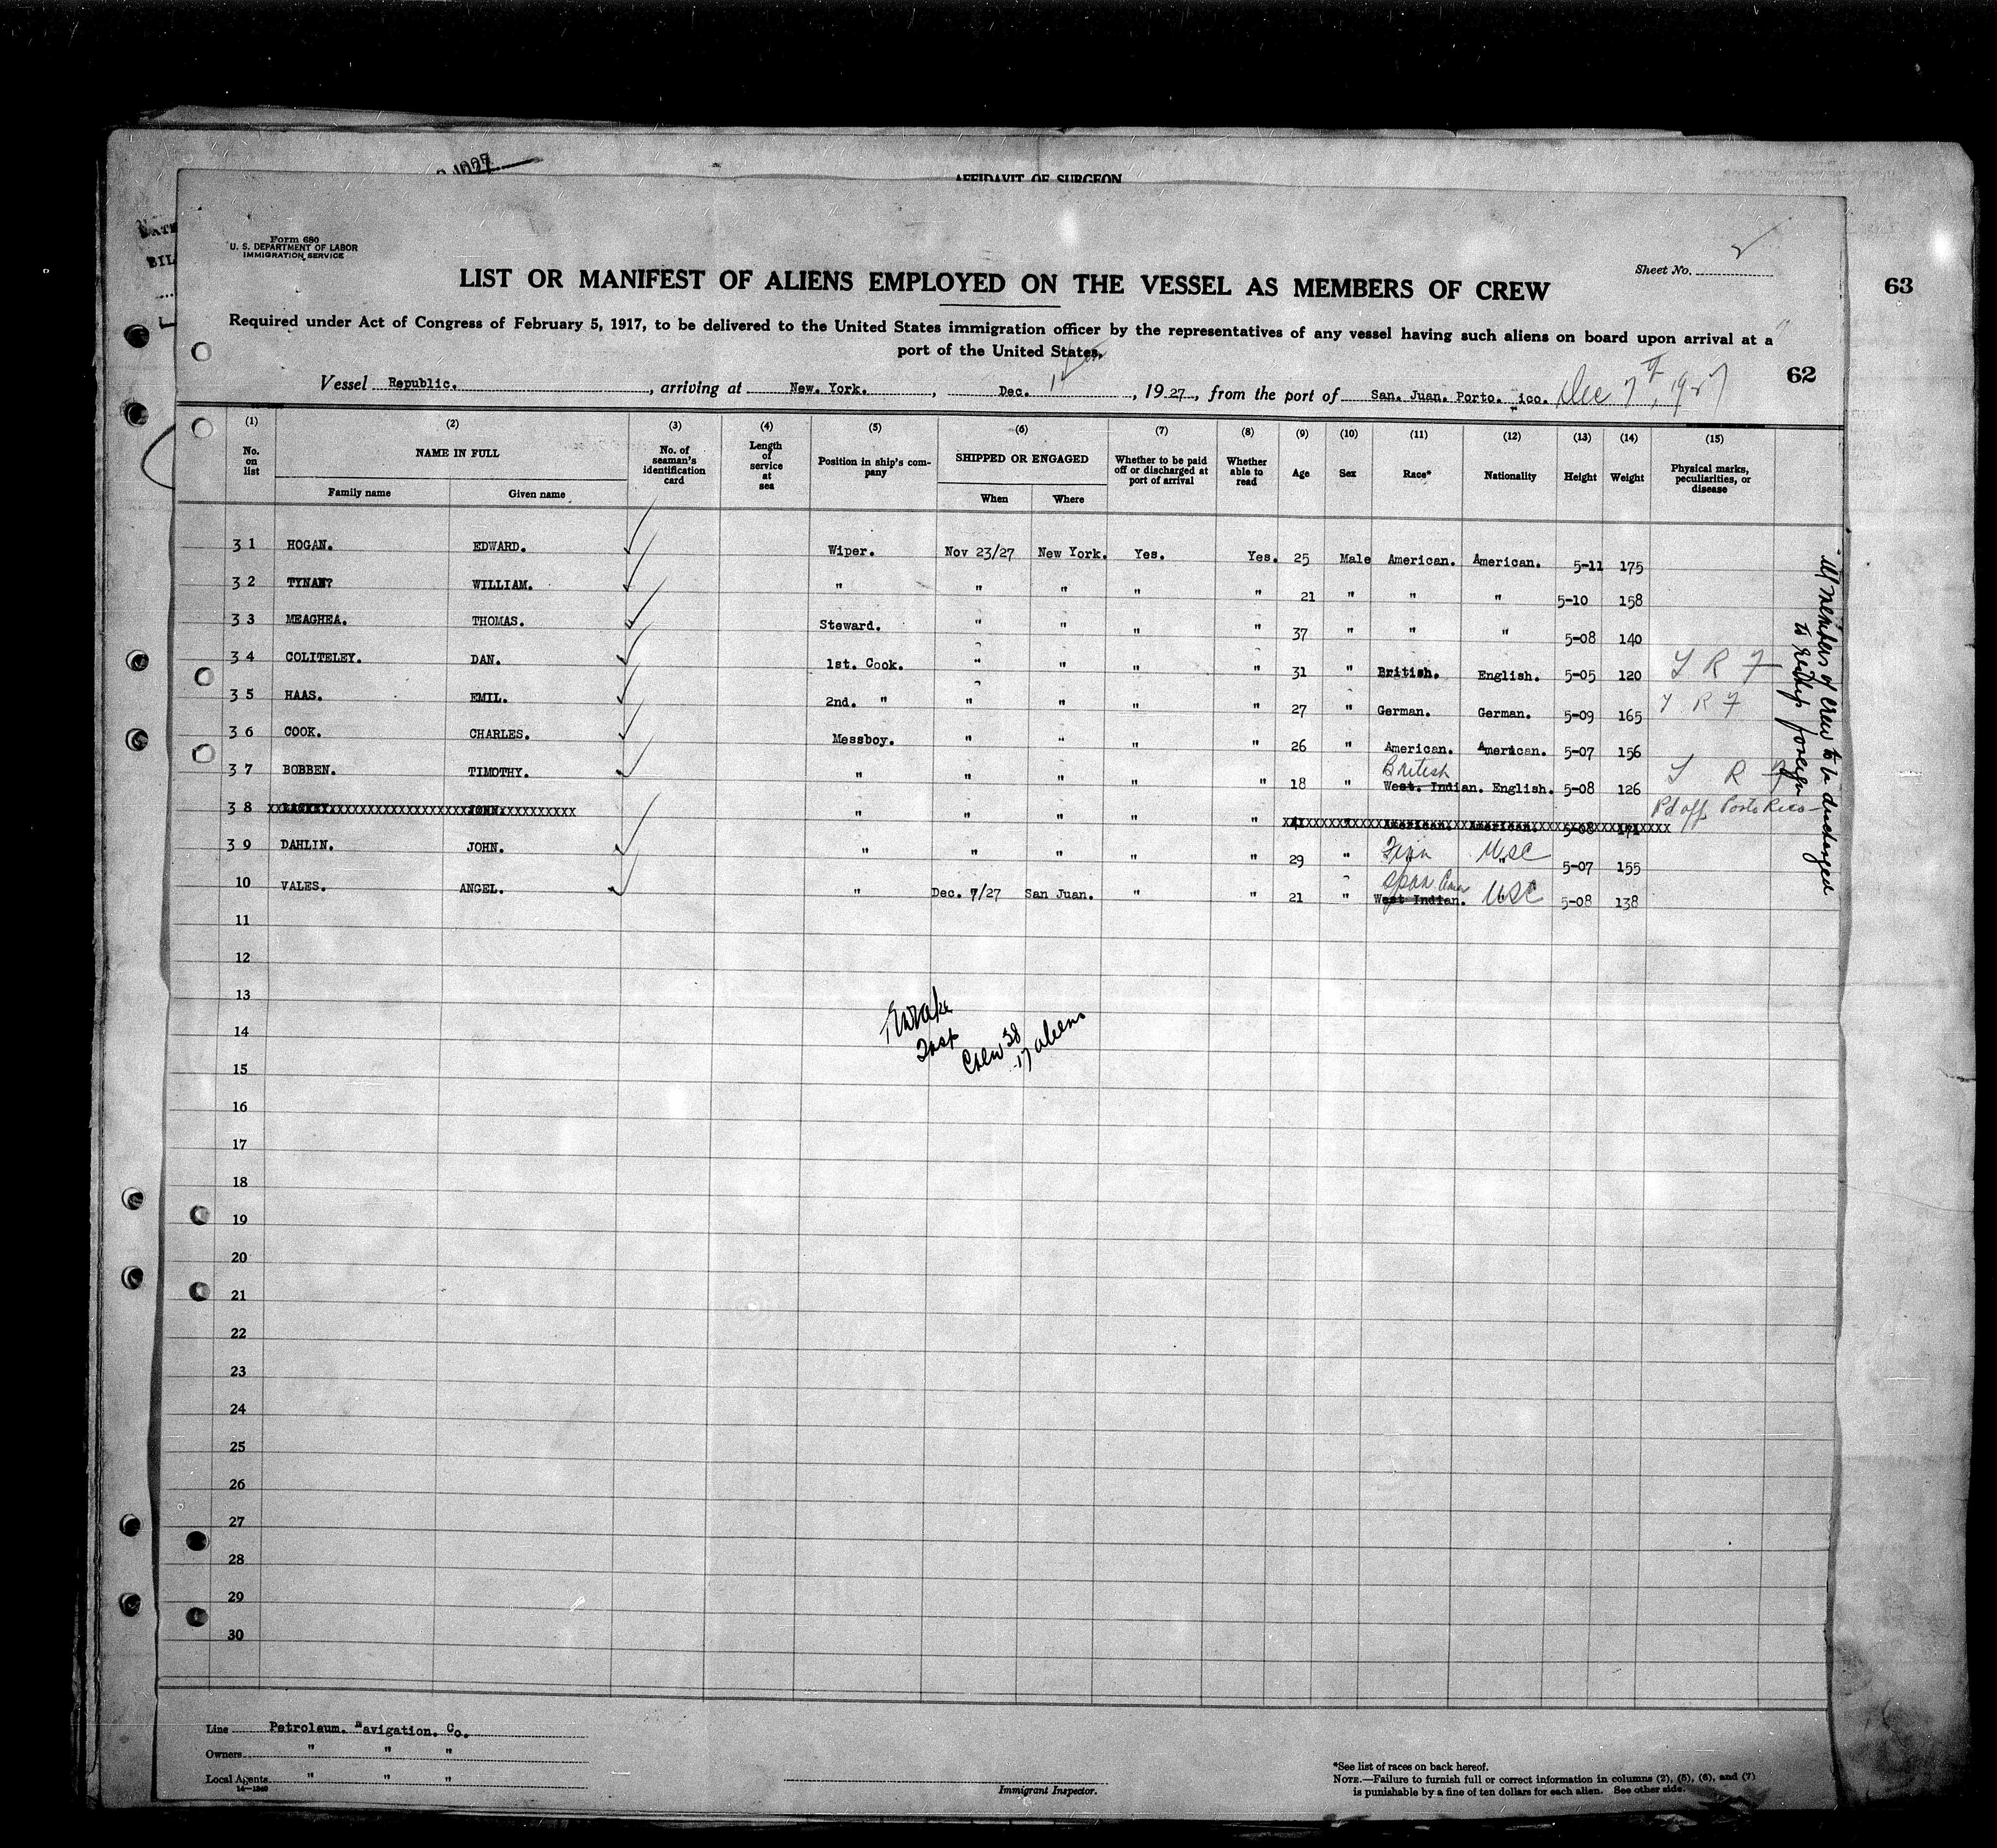 AFFIDAVIT OF SURGEON
Form 680
U. S. DEPARTMENT OF LABOR
IMMIGRATION SERVICE
Sheet No. 2
63
LIST OR MANIFEST OF ALIENS EMPLOYED ON THE VESSEL AS MEMBERS OF CREW
Required under Act of Congress of February 5, 1917, to be delivered to the United States immigration officer by the representatives of any vessel having such aliens on board upon arrival at a
port of the United States.
62
Vessel Republic. , arriving at New. York. , Dec. 1 , 19 27 , from the port of San. Juan. Porto. ico. Dec 7th, 1927
(1) (2) (3) (4) (5) (6) (7) (8) (9) (10) (11) (12) (13) (14) (15)
No. on list NAME IN FULL No. of seaman's identification card Length of service at sea Position in ship's company SHIPPED OR ENGAGED Whether to be paid off or discharged at port of arrival Whether able to read Age Sex Race* Nationality Height Weight Physical marks, peculiarities, or disease
Family name Given name When Where
31 HOGAN. EDWARD. Wiper. Nov 23/27 New York. Yes. Yes. 25 Male American. American. 5-11 175
32 TYNAN? WILLIAM. " " " " " 21 " " " 5-10 158
33 MEAGHEA. THOMAS. Steward. " " " " 37 " " " 5-08 140
34 COLITELEY. DAN. 1st. Cook. " " " " 31 " British. English. 5-05 120
35 HAAS. EMIL. 2nd. " " " " " 27 " German. German. 5-09 165
36 COOK. CHARLES. Messboy. " " " " 26 " American. American. 5-07 156
37 BOBBEN. TIMOTHY. " " " " " 18 " British West. Indian. English. 5-08 126
38 JOHN. " " " " " American. American. 5-08 Pd off Porto Rico
39 DAHLIN. JOHN. " " " " " 29 " Finn USC 5-07 155
10 VALES. ANGEL. " Dec. 7/27 San Juan. " " 21 " Span Amer West Indian. USC 5-08 138
All members of crew to be discharged
to reship foreign
11
12
13
14
15
Insp
Crew 38
17 aliens
16
17
18
19
20
21
22
23
24
25
26
27
28
29
30
Line Petroleum. Navigation. Co.
Owners " " "
Local Agents " " "
14—1240
Immigrant Inspector.
*See list of races on back hereof.
NOTE.—Failure to furnish full or correct information in columns (2), (5), (6), and (7)
is punishable by a fine of ten dollars for each alien. See other side.